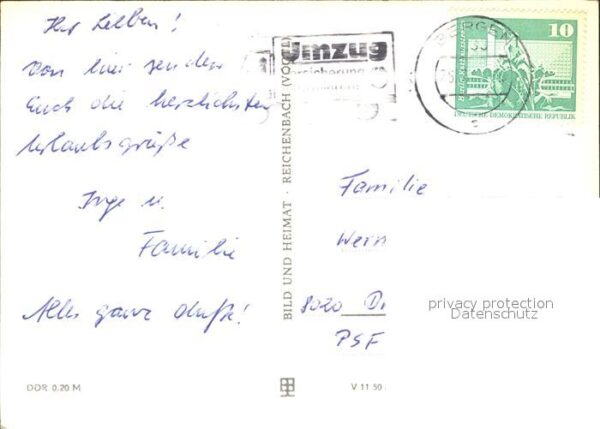 Ihr Lieben!
Von hier senden
Euch die herzlichsten
Urlaubsgrüße
Inge u.
Familie
Alles ganz dufte!
DDR 0,20 M
BILD UND HEIMAT · REICHENBACH (VOGTL)
V 11 50
Umzug
BERGEN
10
DEUTSCHE DEMOKRATISCHE REPUBLIK
Familie
Wern
8020 D
PSF
privacy protection
Datenschutz